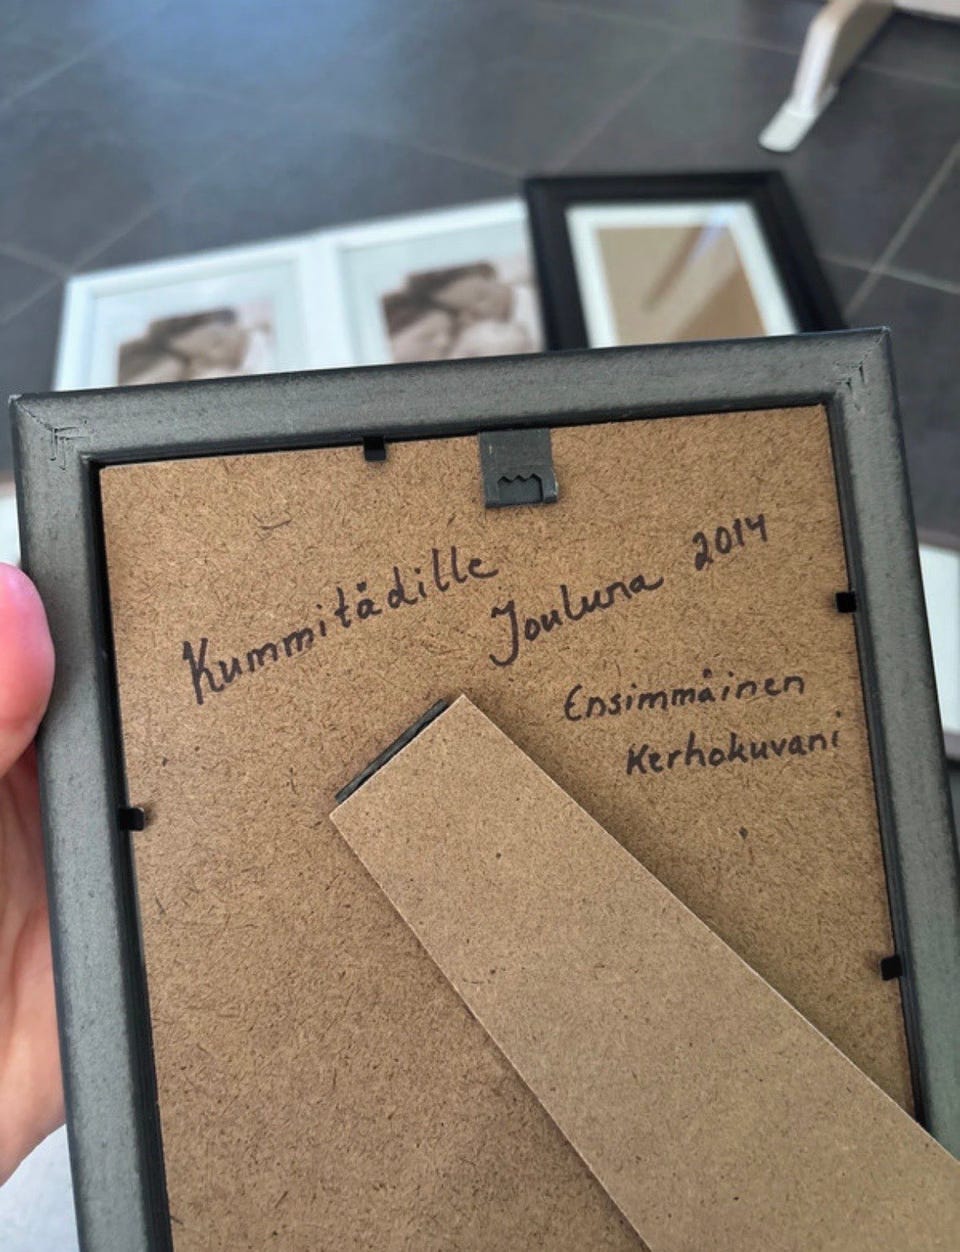 Kummitädille
Jouluna 2014
Ensimmäinen
Kerhokuvani